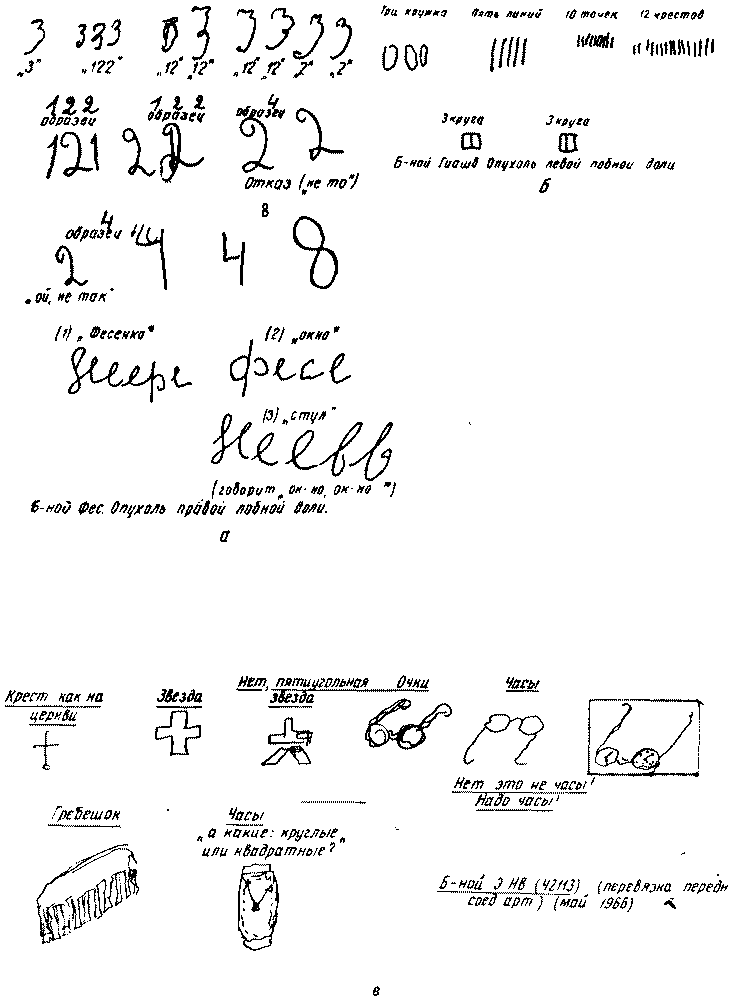 3 333 8 3 3 3 3 3
„3" „122" „12" „12" „12" „12" „2" „2"
Три кружка Пять линий 10 точек 12 крестов
122 122 4
образец образец образец
121 2 2 2 2
Отказ („не то")
3 круга 3 круга
Б-ной Гиашв Опухоль левой лобной доли
б
8
4
образец 4
2 4 4 8
„ой, не так"
(1) „Фесенко" (2) „окно"
фесе
(3) „стул"
(говорит „ок-но, ок-но")
Б-ной Фес. Опухоль правой лобной доли.
а
Крест как на церкви
Звезда
Нет, пятиугольная звезда
Очки
Часы
Нет это не часы!
Надо часы!
Гребешок
Часы
„а какие: круглые
или квадратные?"
Б-ной Э НВ (42113) (перевязка передн
соед арт) (май 1966)
в